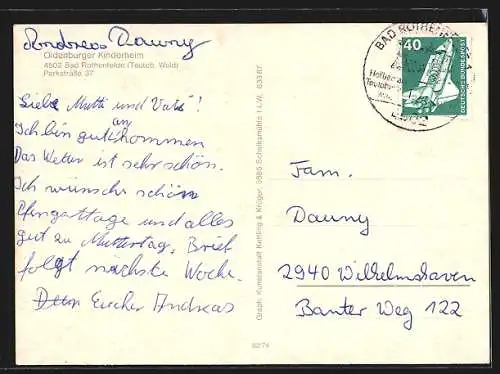 Andreas Dauny
Oldenburger Kinderheim
4502 Bad Rothenfelde (Teutob. Wald)
Parkstraße 37
Liebe Mutti und Vati!
Ich bin gut an gekommen
Das Wetter ist sehr schön.
Ich wünsche schön
Pfingsttage und alles
gut zu Muttertag, Brief
folgt nächste Woche.
Eucher Andreas
Graph. Kunstanstalt Kettling & Krüger, 5885 Schalksmühle i.W.
82/74
BAD ROTHENFE
40
DEUTSCHE BUNDESPOST
Fam.
Dauny
2940 Wilhelmshaven
Banter Weg 122